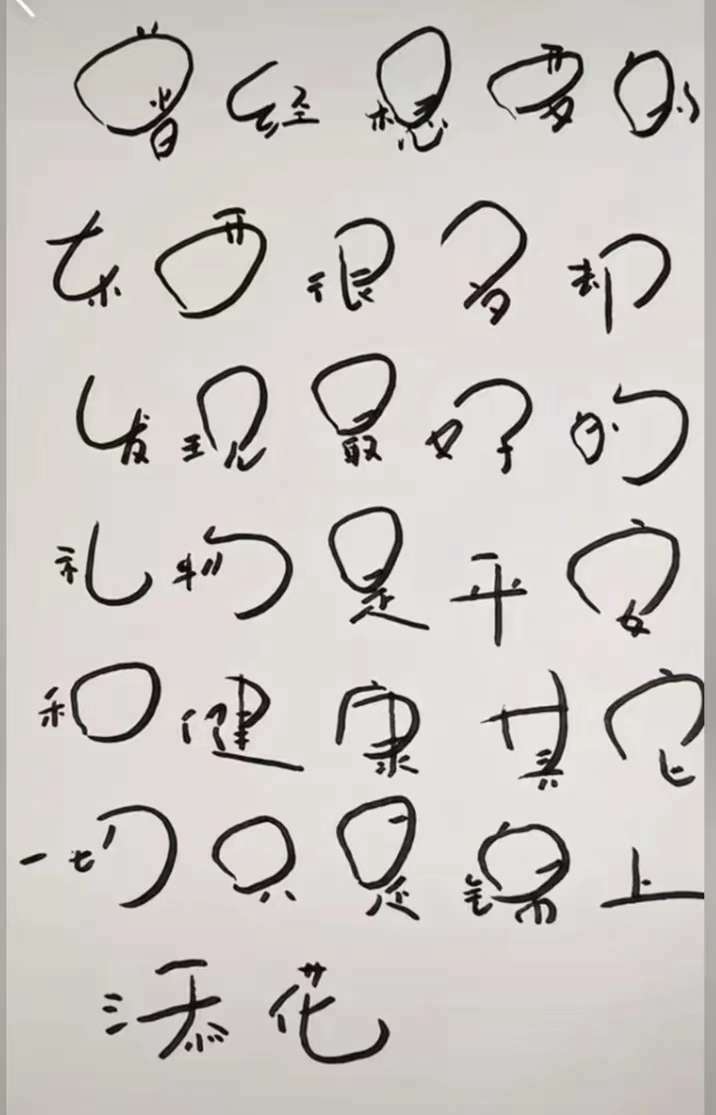 曾经想要的
东西很多却
发现最好的
礼物是平安
和健康其它
一切只是锦上
添花